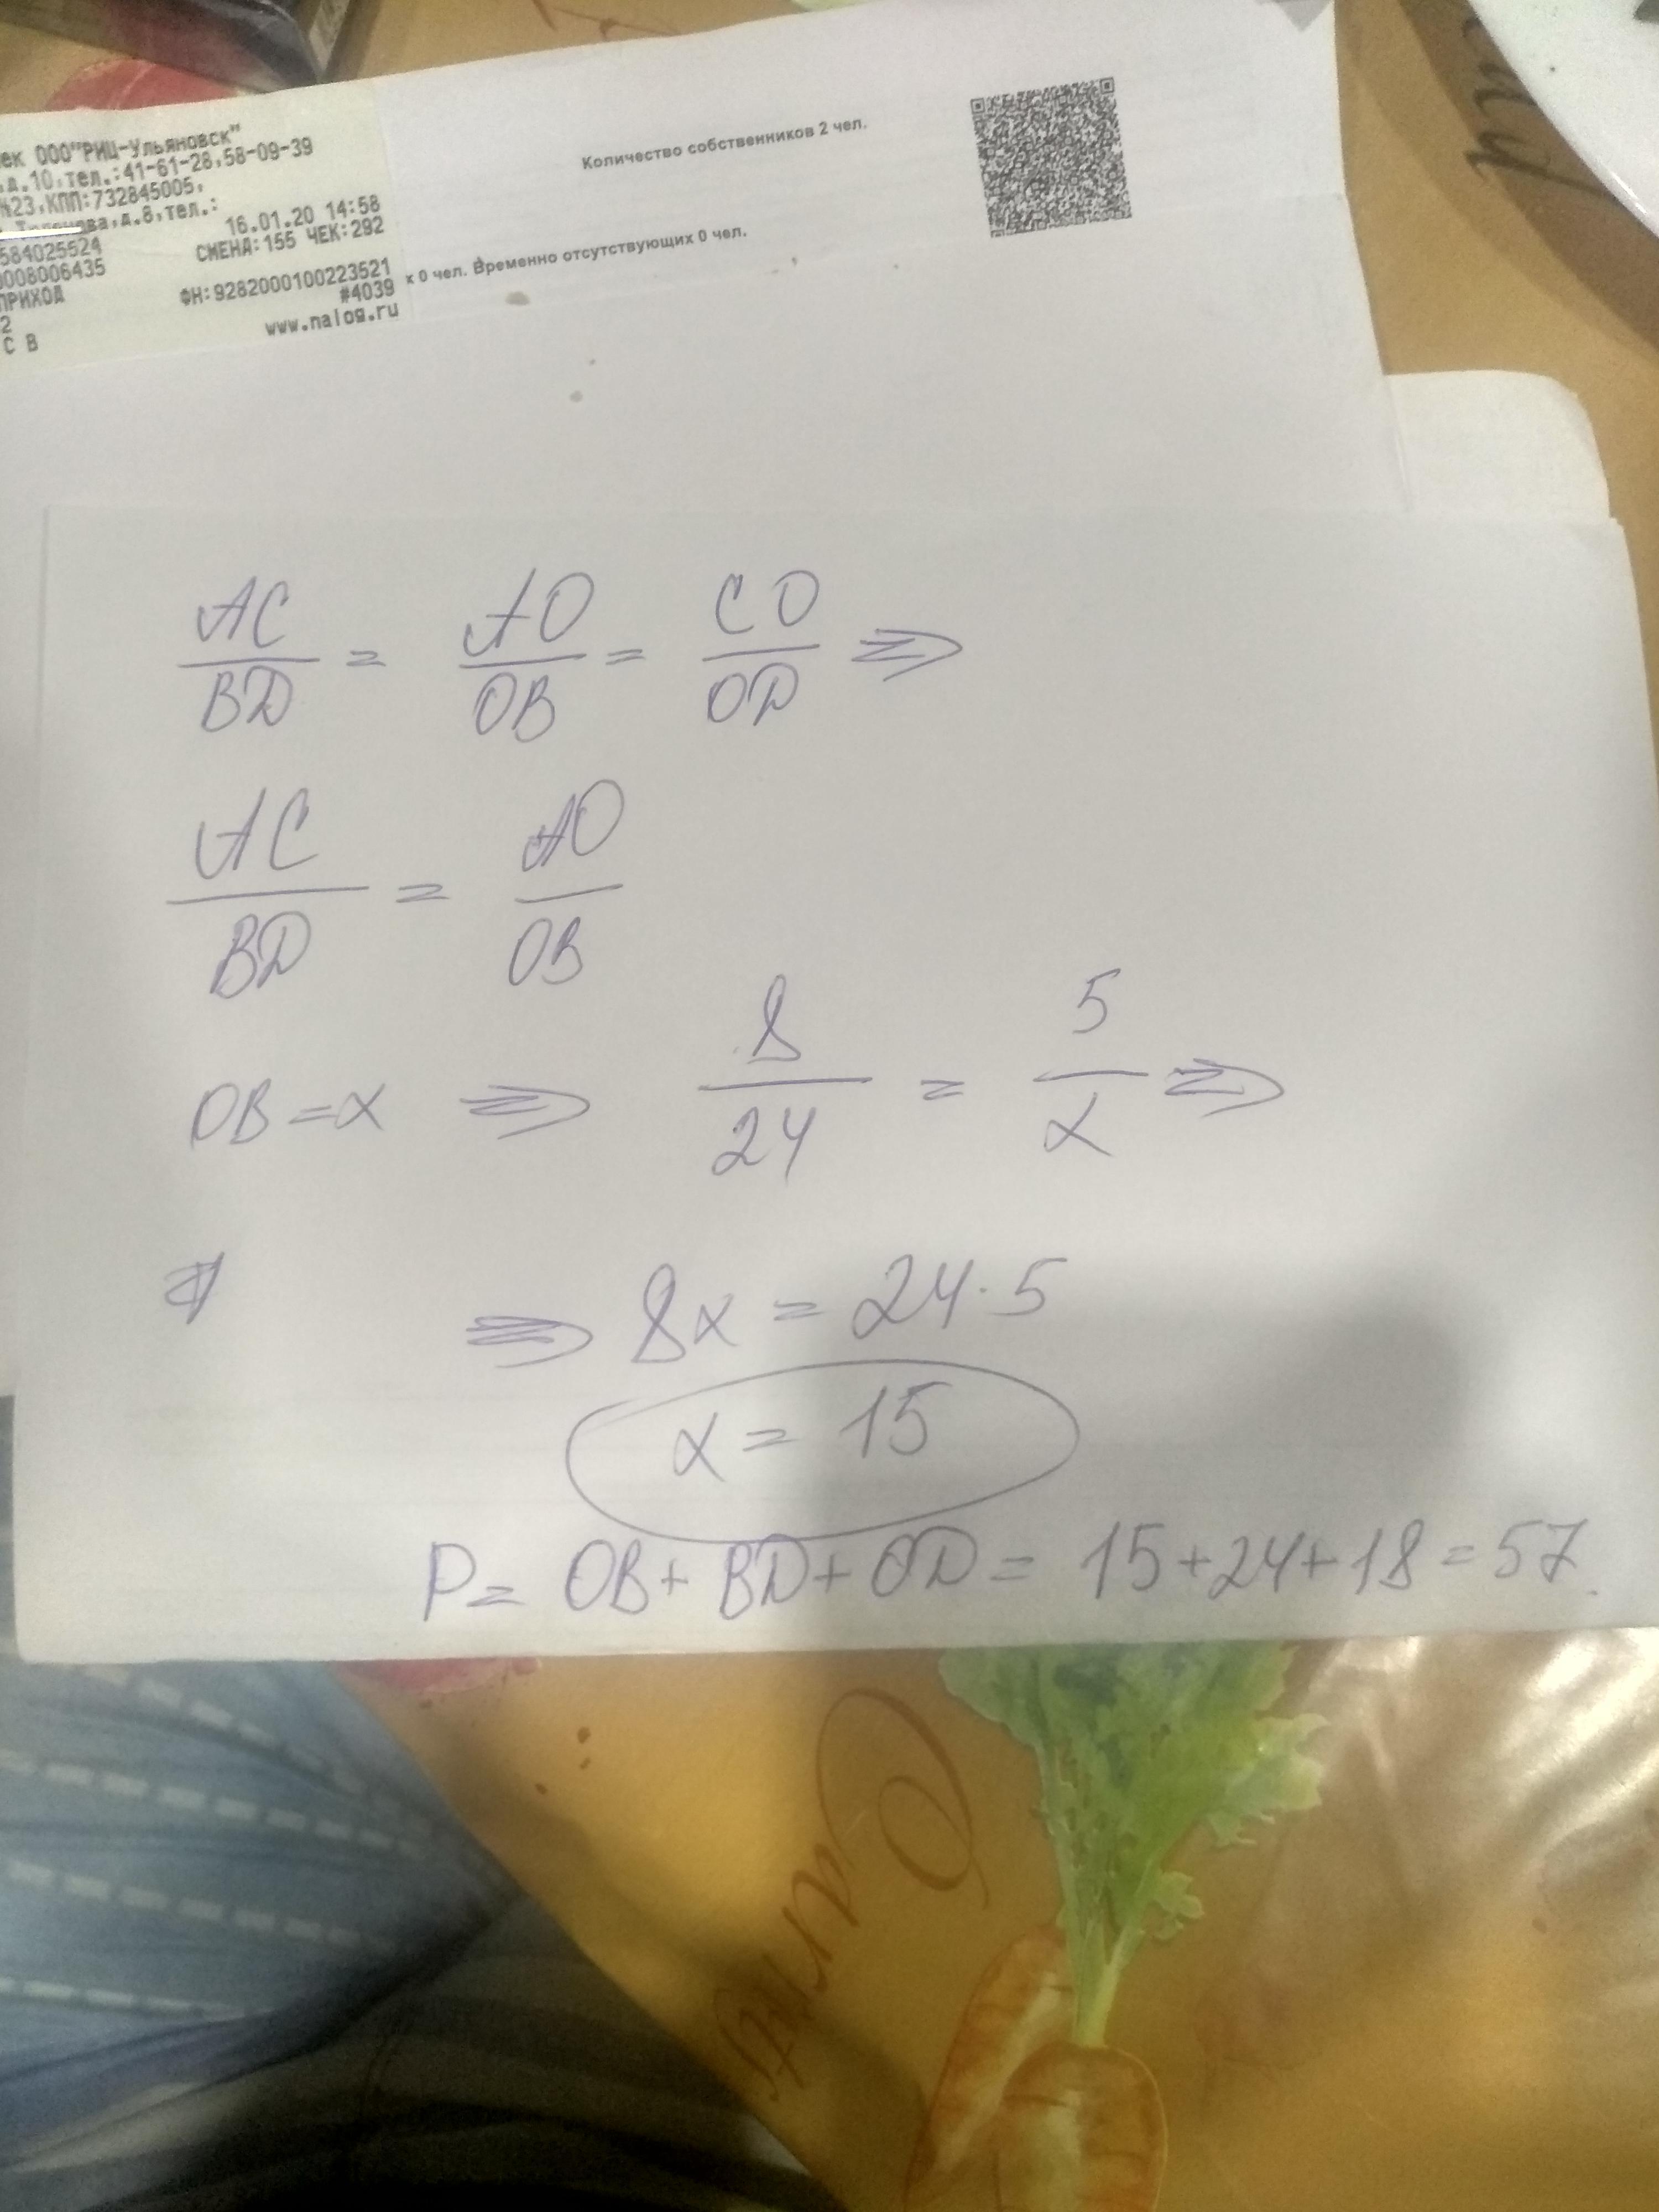 ек ООО"РИЦ-Ульяновск"
,д.10,тел.:41-61-28,58-09-39
№23,КПП:732845005,
ва,д.8,тел.:
16.01.20 14:58
584025524
СМЕНА:155 ЧЕК:292
0008006435
ПРИХОД
ФН:9282000100223521
2
#4039
С В
www.nalog.ru
Количество собственников 2 чел.
х 0 чел. Временно отсутствующих 0 чел.
AC/BD = AO/OB = CO/OD ⇒
AC/BD = AO/OB
OB = x ⇒ 8/24 = 5/x ⇒
⇒ 8x = 24·5
x = 15
P = OB + BD + OD = 15+24+18=57.